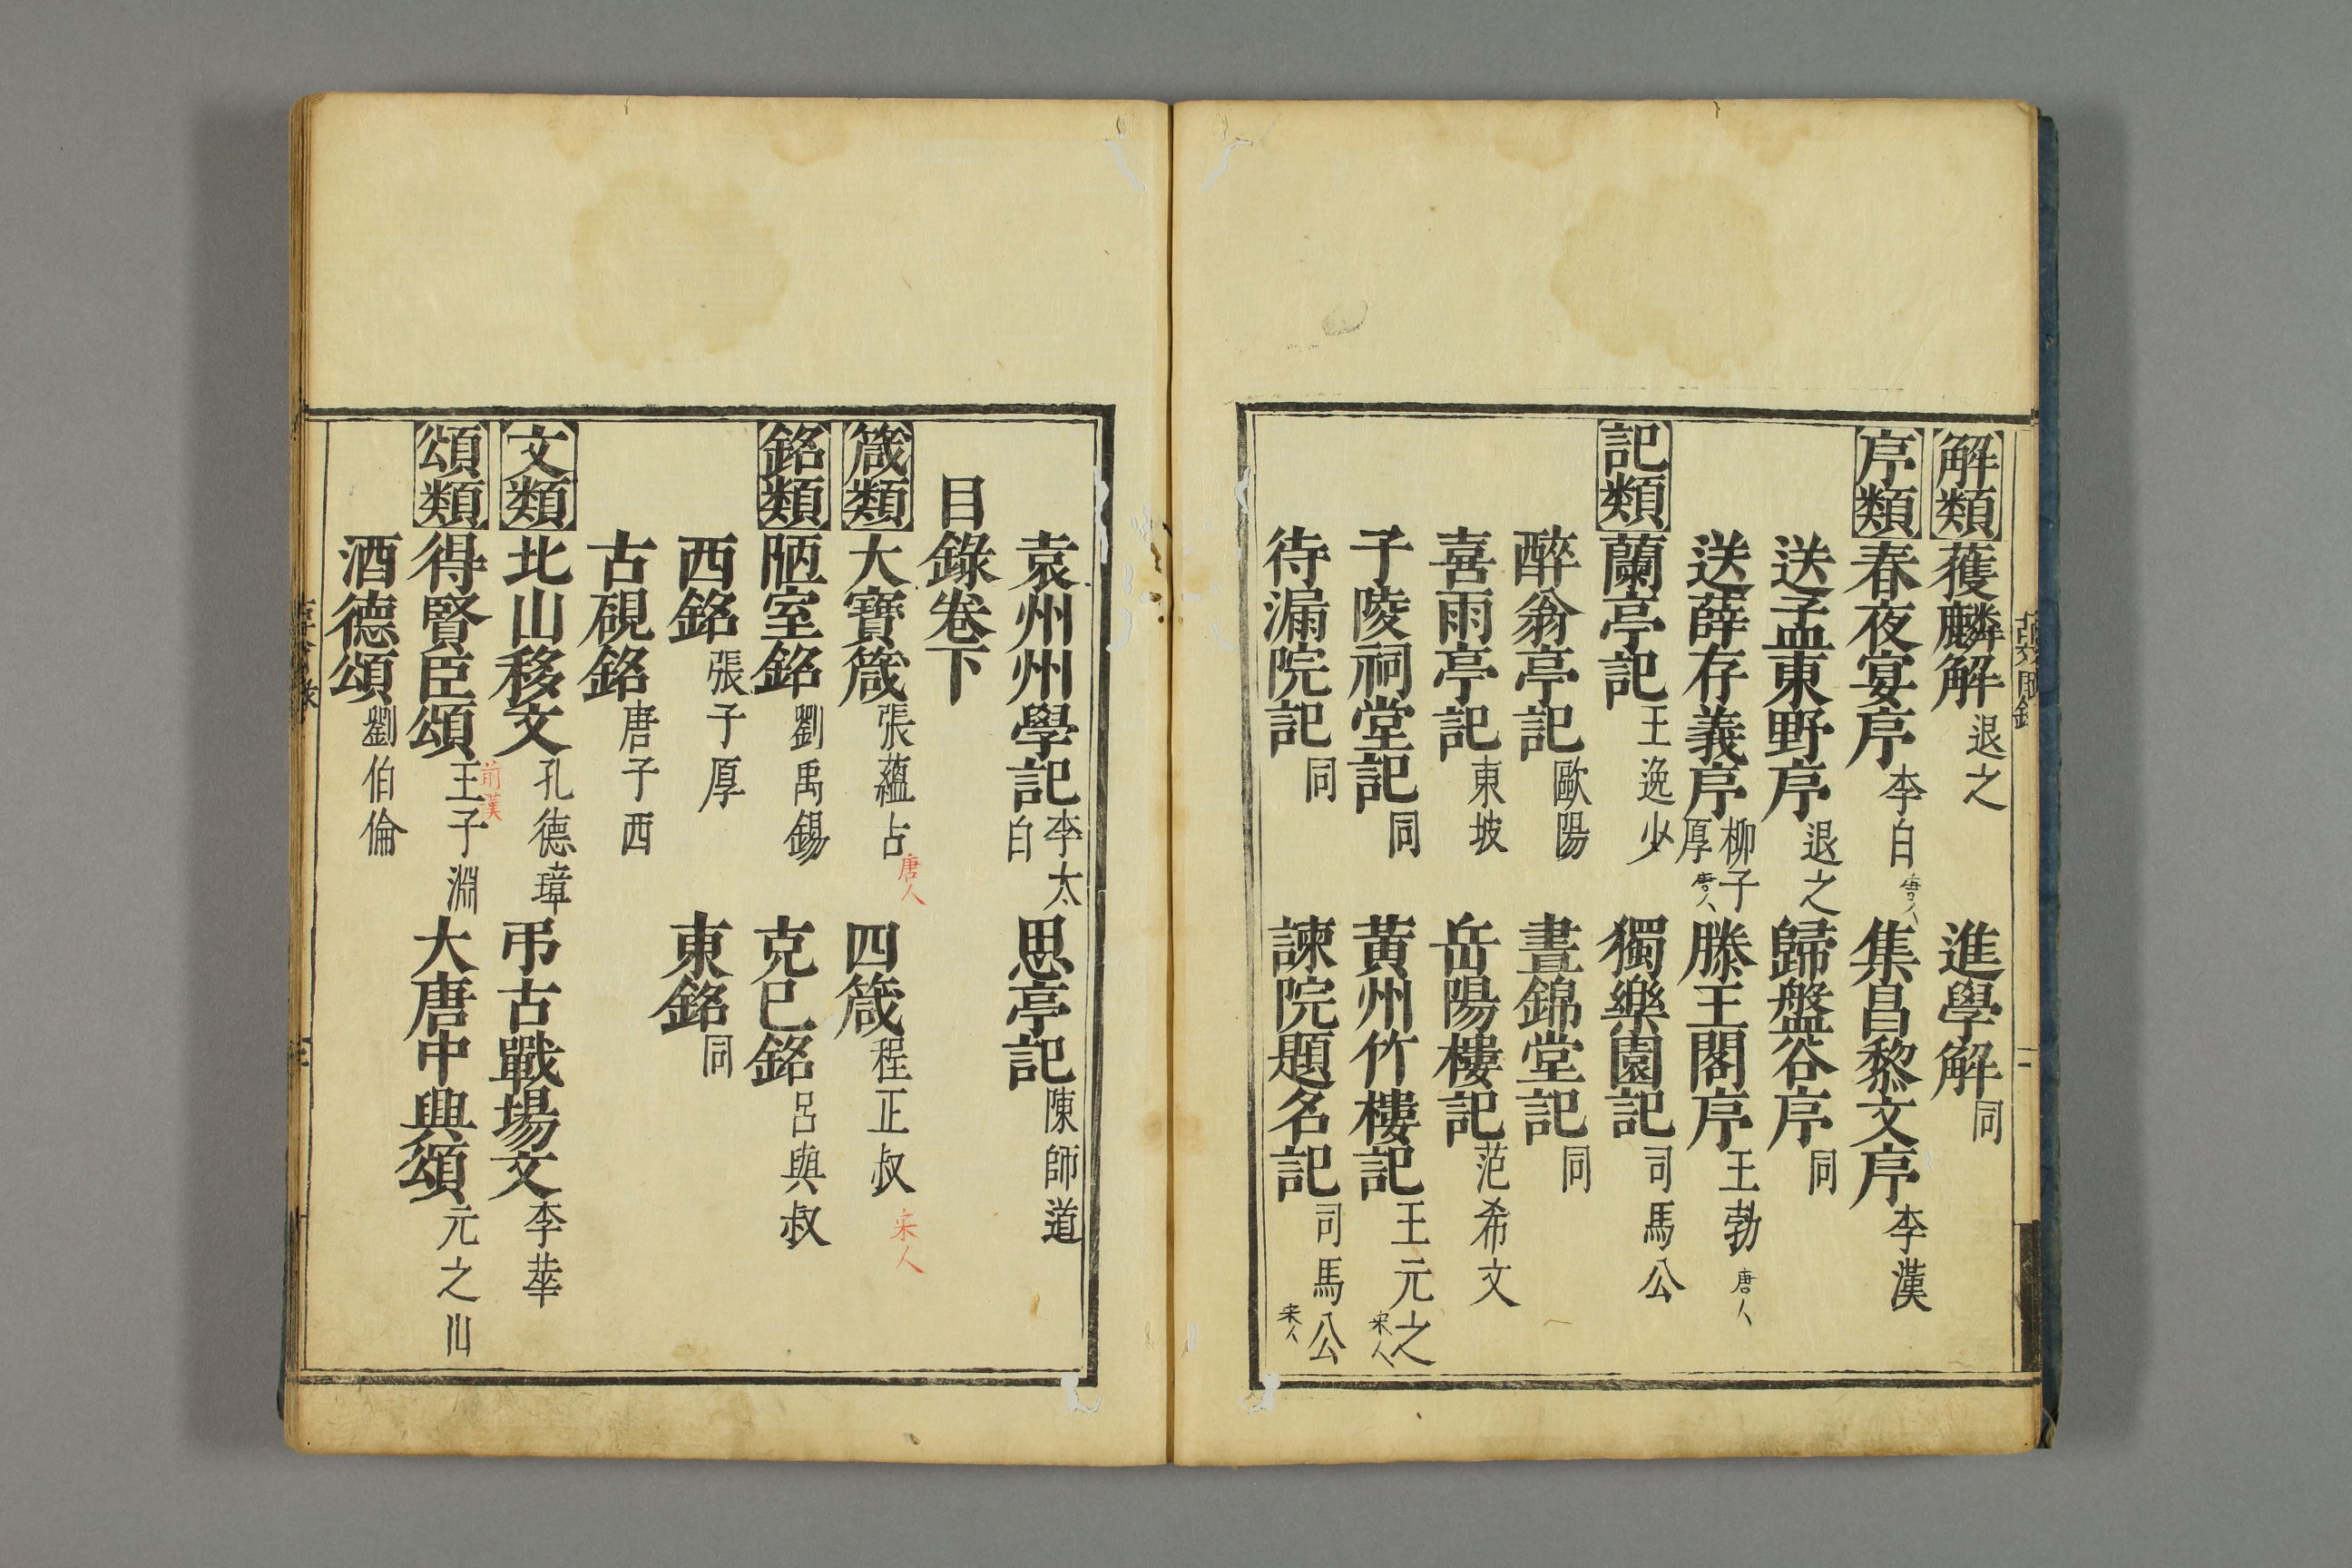 解類 獲麟解 退之 進學解 同
序類 春夜宴序 李白 唐人 集昌黎文序 李漢
送孟東野序 退之 歸盤谷序 同
送薛存義序 柳子厚 唐人 滕王閣序 王勃 唐人
記類 蘭亭記 王逸少 獨樂園記 司馬公
醉翁亭記 歐陽 晝錦堂記 同
喜雨亭記 東坡 岳陽樓記 范希文
子陵祠堂記 同 黃州竹樓記 王元之 宋人
待漏院記 同 諫院題名記 司馬公 宋人
袁州州學記 李太白 思亭記 陳師道
目錄卷下
箴類 大寶箴 張蘊占 唐人 四箴 程正叔 宋人
銘類 陋室銘 劉禹錫 克已銘 呂與叔
西銘 張子厚 東銘 同
古硯銘 唐子西
文類 北山移文 孔德璋 弔古戰場文 李華
頌類 得賢臣頌 王子淵 前漢 大唐中興頌 元之山
酒德頌 劉伯倫